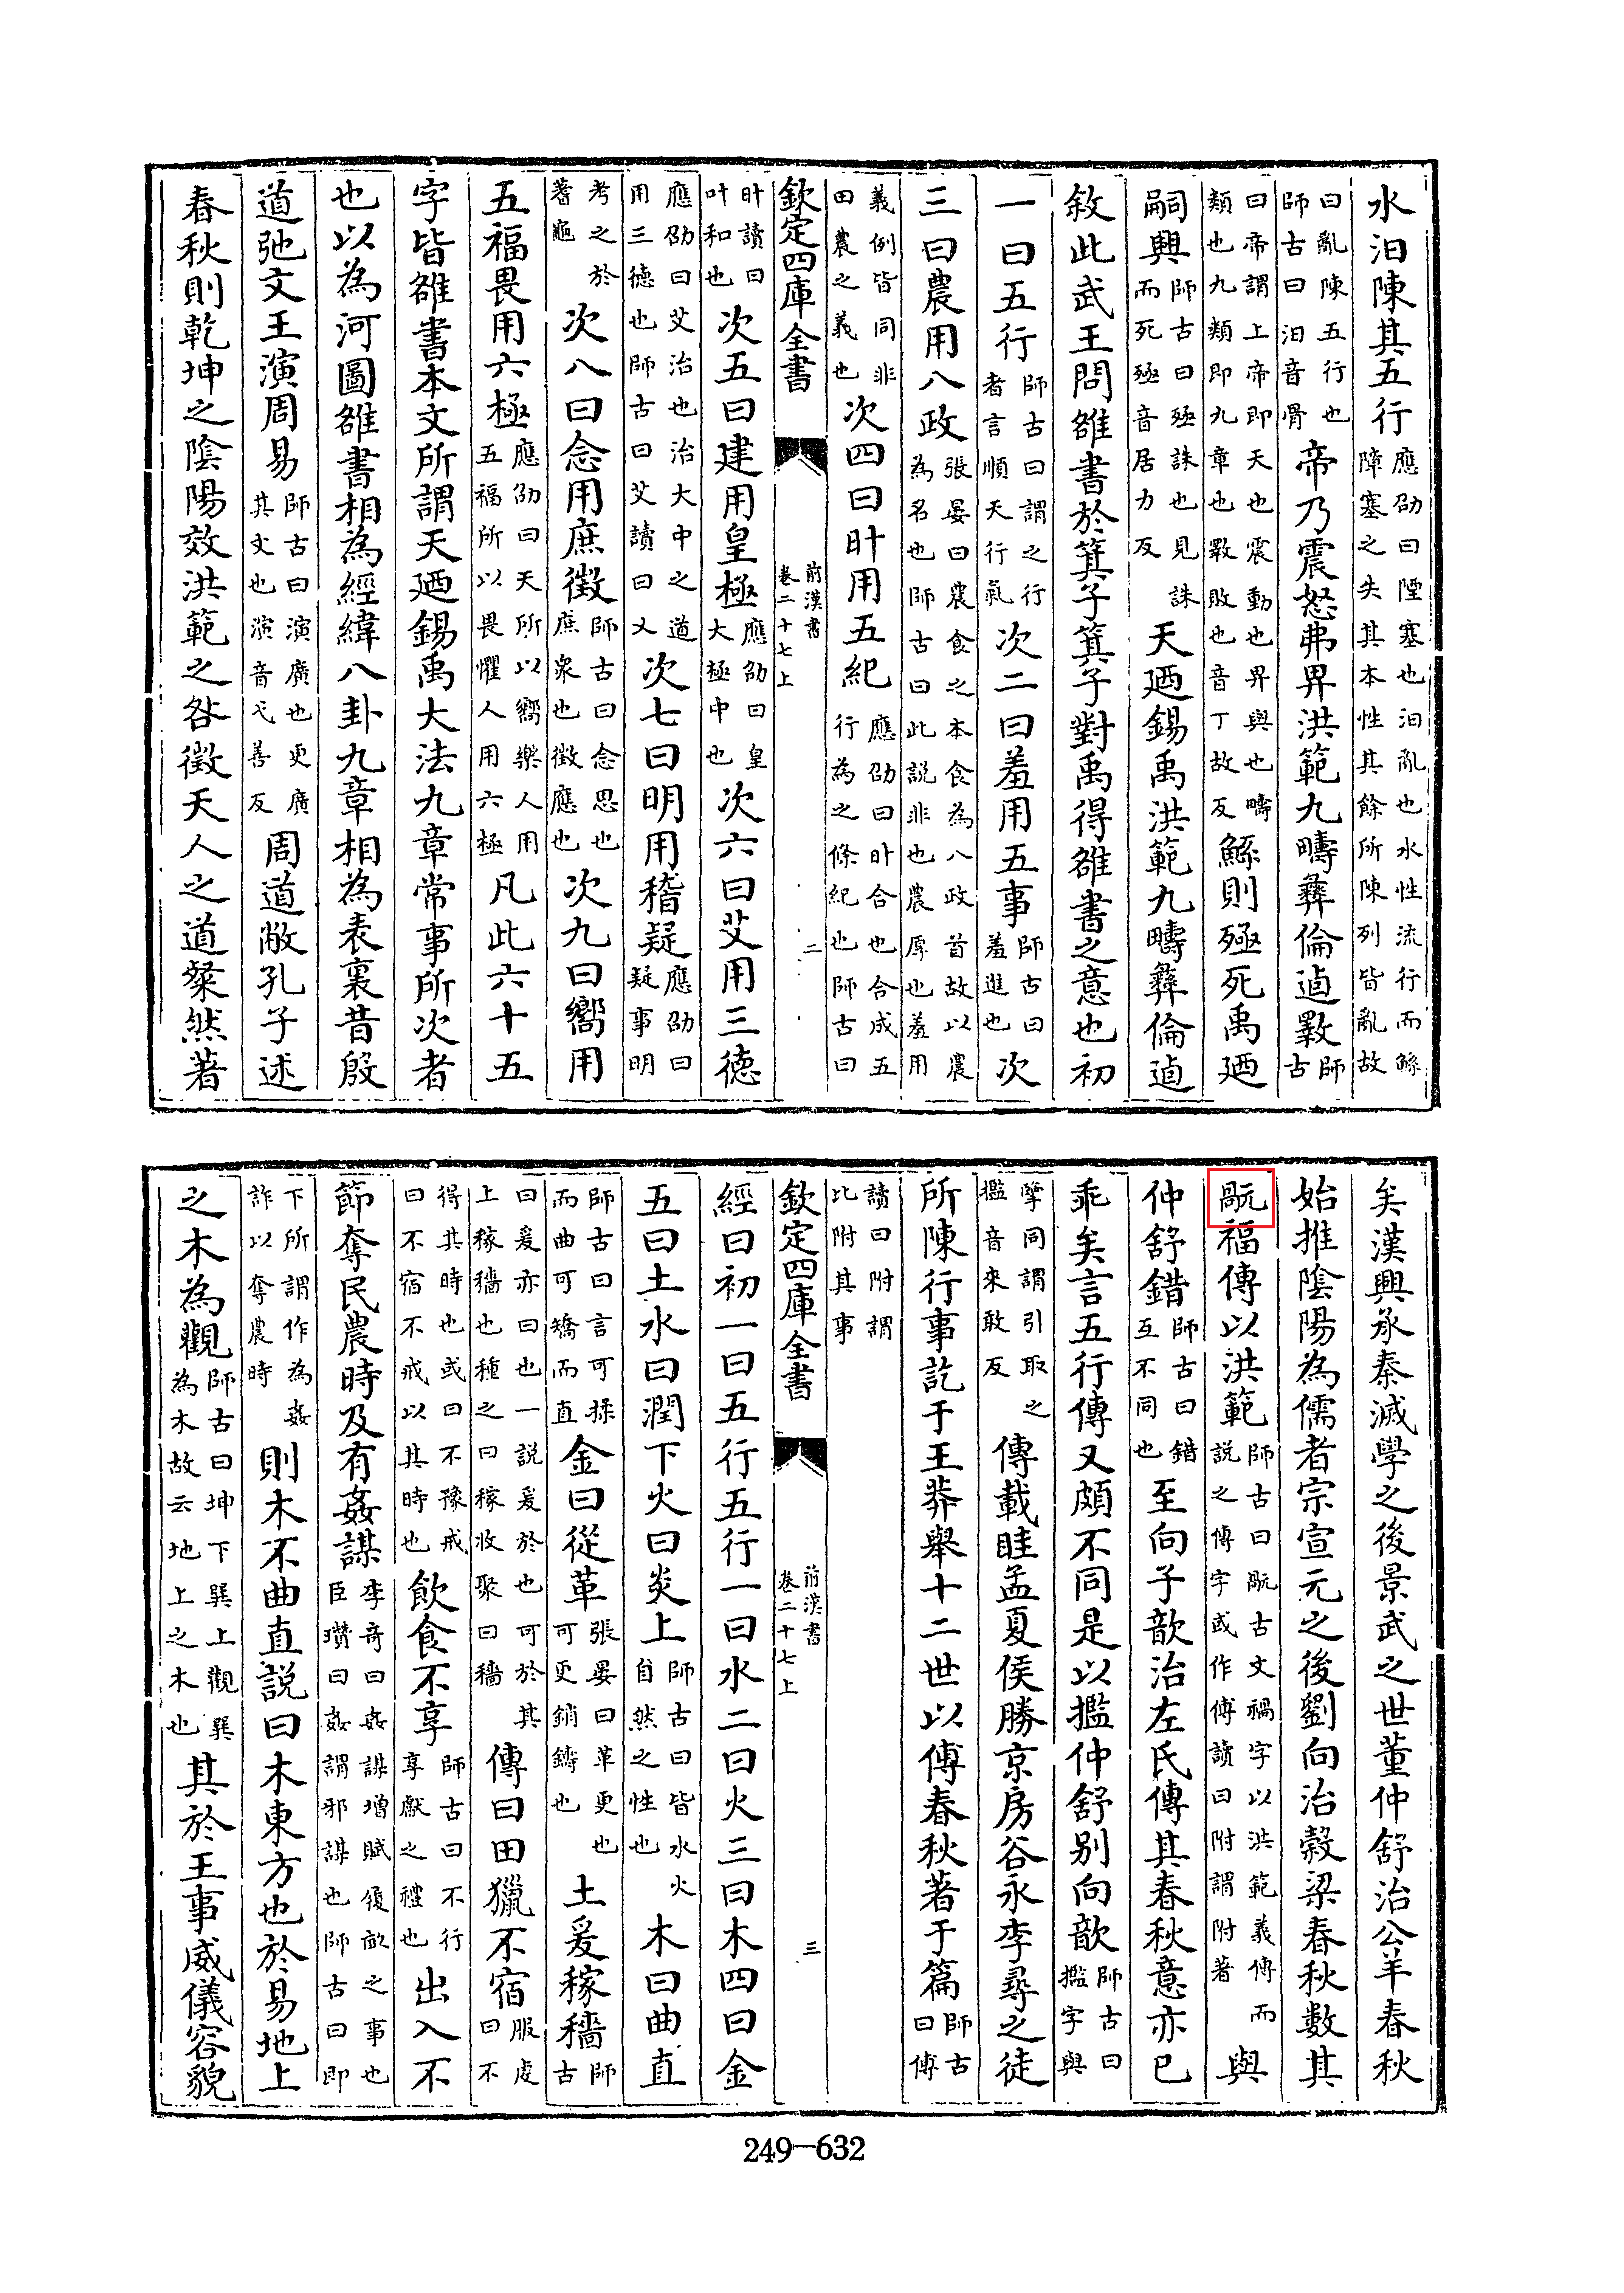 水汨陳其五行應劭曰陻塞也汨亂也水性流行而鯀障塞之失其本性其餘所陳列皆亂故
曰亂陳五行也師古曰汨音骨帝乃震怒弗畀洪範九疇彝倫逌斁師古
曰帝謂上帝即天也震動也畀與也疇類也九類即九章也斁敗也音丁故反鯀則殛死禹迺
嗣興師古曰殛誅也見誅而死殛音居力反天迺錫禹洪範九疇彝倫逌
敘此武王問雒書於箕子箕子對禹得雒書之意也初
一曰五行師古曰謂之行者言順天行氣次二曰羞用五事師古曰羞進也次
三曰農用八政張晏曰農食之本食為八政首故以農為名也師古曰此説非也農厚也羞用
義例皆同非田農之義也次四曰旪用五紀應劭曰旪合也合成五行為之條紀也師古曰
欽定四庫全書 前漢書卷二十七上 二
旪讀曰叶和也次五曰建用皇極應劭曰皇大極中也次六曰艾用三德
應劭曰艾治也治大中之道用三德也師古曰艾讀曰乂次七曰明用稽疑應劭曰疑事明
考之於蓍龜次八曰念用庶徵師古曰念思也庶衆也徵應也次九曰嚮用
五福畏用六極應劭曰天所以嚮樂人用五福所以畏懼人用六極凡此六十五
字皆雒書本文所謂天迺錫禹大法九章常事所次者
也以為河圖雒書相為經緯八卦九章相為表裏昔殷
道弛文王演周易師古曰演廣也更廣其文也演音弋善反周道敝孔子述
春秋則乾坤之陰陽效洪範之咎徵天人之道粲然著
矣漢興承秦滅學之後景武之世董仲舒治公羊春秋
始推陰陽為儒者宗宣元之後劉向治榖梁春秋數其
旤福傳以洪範師古曰旤古文禍字以洪範義傳而説之傳字或作傅讀曰附謂附著與
仲舒錯師古曰錯互不同也至向子歆治左氏傳其春秋意亦已
乖矣言五行傳又頗不同是以㩜仲舒别向歆師古曰㩜字與
擥同謂引取之㩜音來敢反傳載眭孟夏侯勝京房谷永李尋之徒
所陳行事訖于王莽舉十二世以傅春秋著于篇師古曰傅
讀曰附謂比附其事
欽定四庫全書 前漢書卷二十七上 三
經曰初一曰五行五行一曰水二曰火三曰木四曰金
五曰土水曰潤下火曰炎上師古曰皆水火自然之性也木曰曲直
師古曰言可揉而曲可矯而直金曰從革張晏曰革更也可更銷鑄也土爰稼穡師古
曰爰亦曰也一説爰於也可於其上稼穡也種之曰稼收聚曰穡傳曰田獵不宿服虔曰不
得其時也或曰不豫戒曰不宿不戒以其時也飲食不享師古曰不行享獻之禮也出入不
節奪民農時及有姦謀李奇曰姦謀増賦履畝之事也臣瓚曰姦謂邪謀也師古曰即
下所謂作為姦詐以奪農時則木不曲直説曰木東方也於易地上
之木為觀師古曰坤下巽上觀巽為木故云地上之木也其於王事威儀容貌
249-632